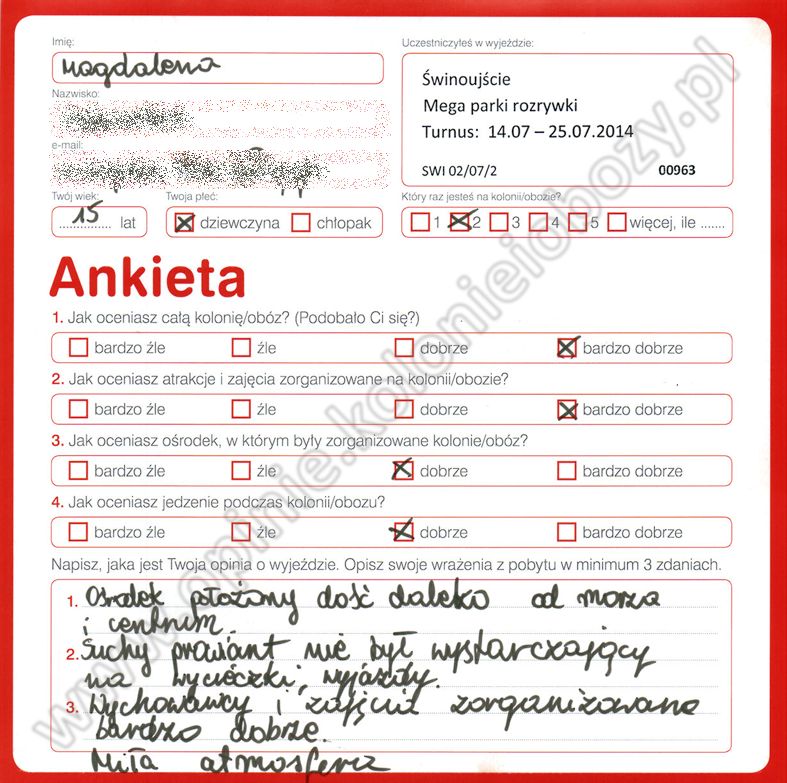 Imię:
Magdalena
Nazwisko:
e-mail:
Twój wiek:
15 lat
Twoja płeć:
dziewczyna chłopak
Uczestniczyłeś w wyjeździe:
Świnoujście
Mega parki rozrywki
Turnus: 14.07 – 25.07.2014
SWI 02/07/2 00963
Który raz jesteś na kolonii/obozie?
1 2 3 4 5 więcej, ile .......
Ankieta
1. Jak oceniasz całą kolonię/obóz? (Podobało Ci się?)
bardzo źle źle dobrze bardzo dobrze
2. Jak oceniasz atrakcje i zajęcia zorganizowane na kolonii/obozie?
bardzo źle źle dobrze bardzo dobrze
3. Jak oceniasz ośrodek, w którym były zorganizowane kolonie/obóz?
bardzo źle źle dobrze bardzo dobrze
4. Jak oceniasz jedzenie podczas kolonii/obozu?
bardzo źle źle dobrze bardzo dobrze
Napisz, jaka jest Twoja opinia o wyjeździe. Opisz swoje wrażenia z pobytu w minimum 3 zdaniach.
1. Ośrodek położony dość daleko od morza
i centrum.
2. Suchy prowiant nie był wystarczający
na wycieczki, wyjazdy.
3. Wychowawcy i zajęcia zorganizowane
bardzo dobrze.
Miła atmosfera
www.opinie.kolonieiobozy.pl